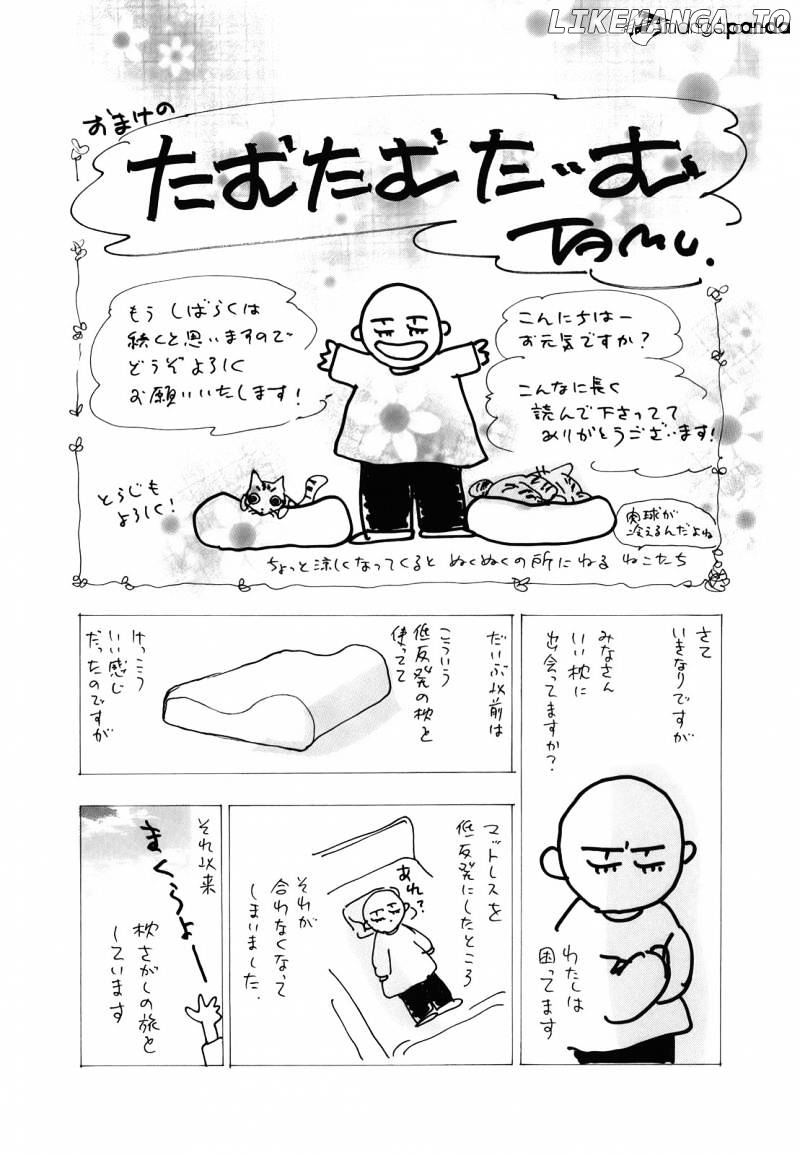 LIKEMANGA.IO
mangapanda
おまけの
たむたむたーいむ
TAMU.
こんにちはー
お元気ですか?
こんなに長く
読んで下さってて
ありがとうございます!
もう しばらくは
続くと思いますので
どうぞよろしく
お願いいたします!
とらじも
よろしく!
肉球が
冷えるんだよね
ちょっと涼しくなってくると ぬくぬくの所にねる ねこたち
さて
いきなりですが
みなさん
いい枕に
出会ってますか?
わたしは
困ってます
だいぶ以前は
こういう
低反発の枕を
使ってて
けっこう
いい感じ
だったのですが
マットレスを
低反発にしたところ
あれ?
それが
合わなくなって
しまいました.
それ以来
まくらよーー
枕さがしの旅を
しています